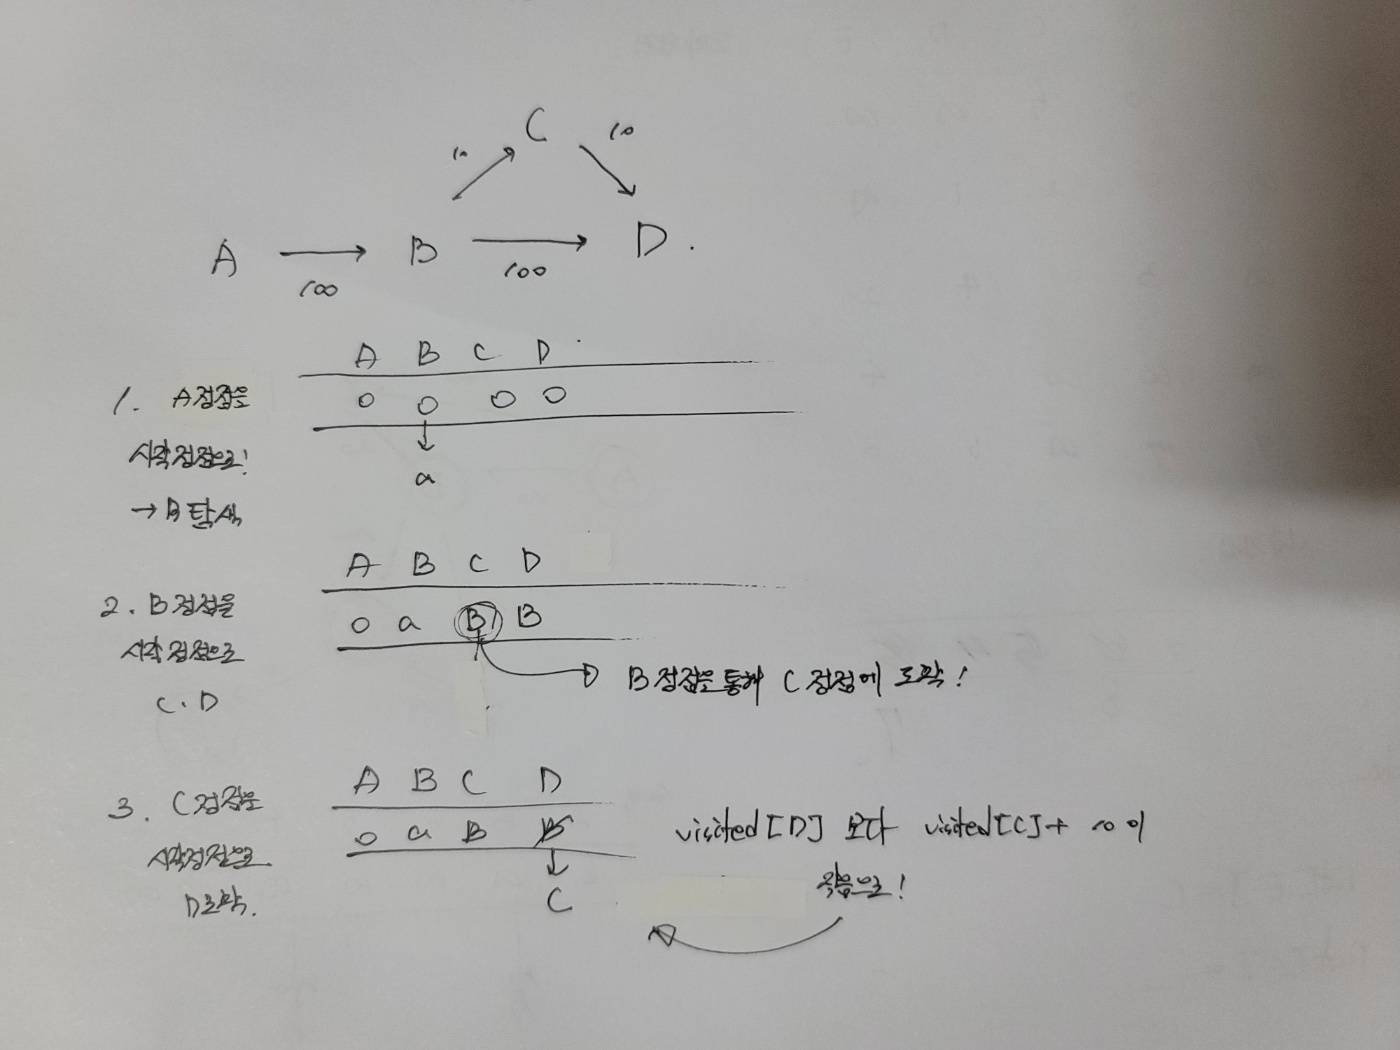 C
10
10
A
B
D.
100
100
A B C D
1. A정점을
0 0 0 0
시작정점으로!
a
→ B 탐색
A B C D
2. B정점을
0 a B B
시작정점으로
B정점을 통해 C정점에 도착!
C.D
A B C D
3. C정점을
0 a B B
visited[D] 보다 visited[C]+10이
시작정점으로
작음으로!
C
D도착.